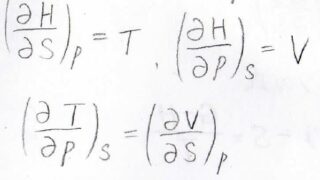 (∂H/∂S)_P = T , (∂H/∂P)_S = V
(∂T/∂P)_S = (∂V/∂S)_P